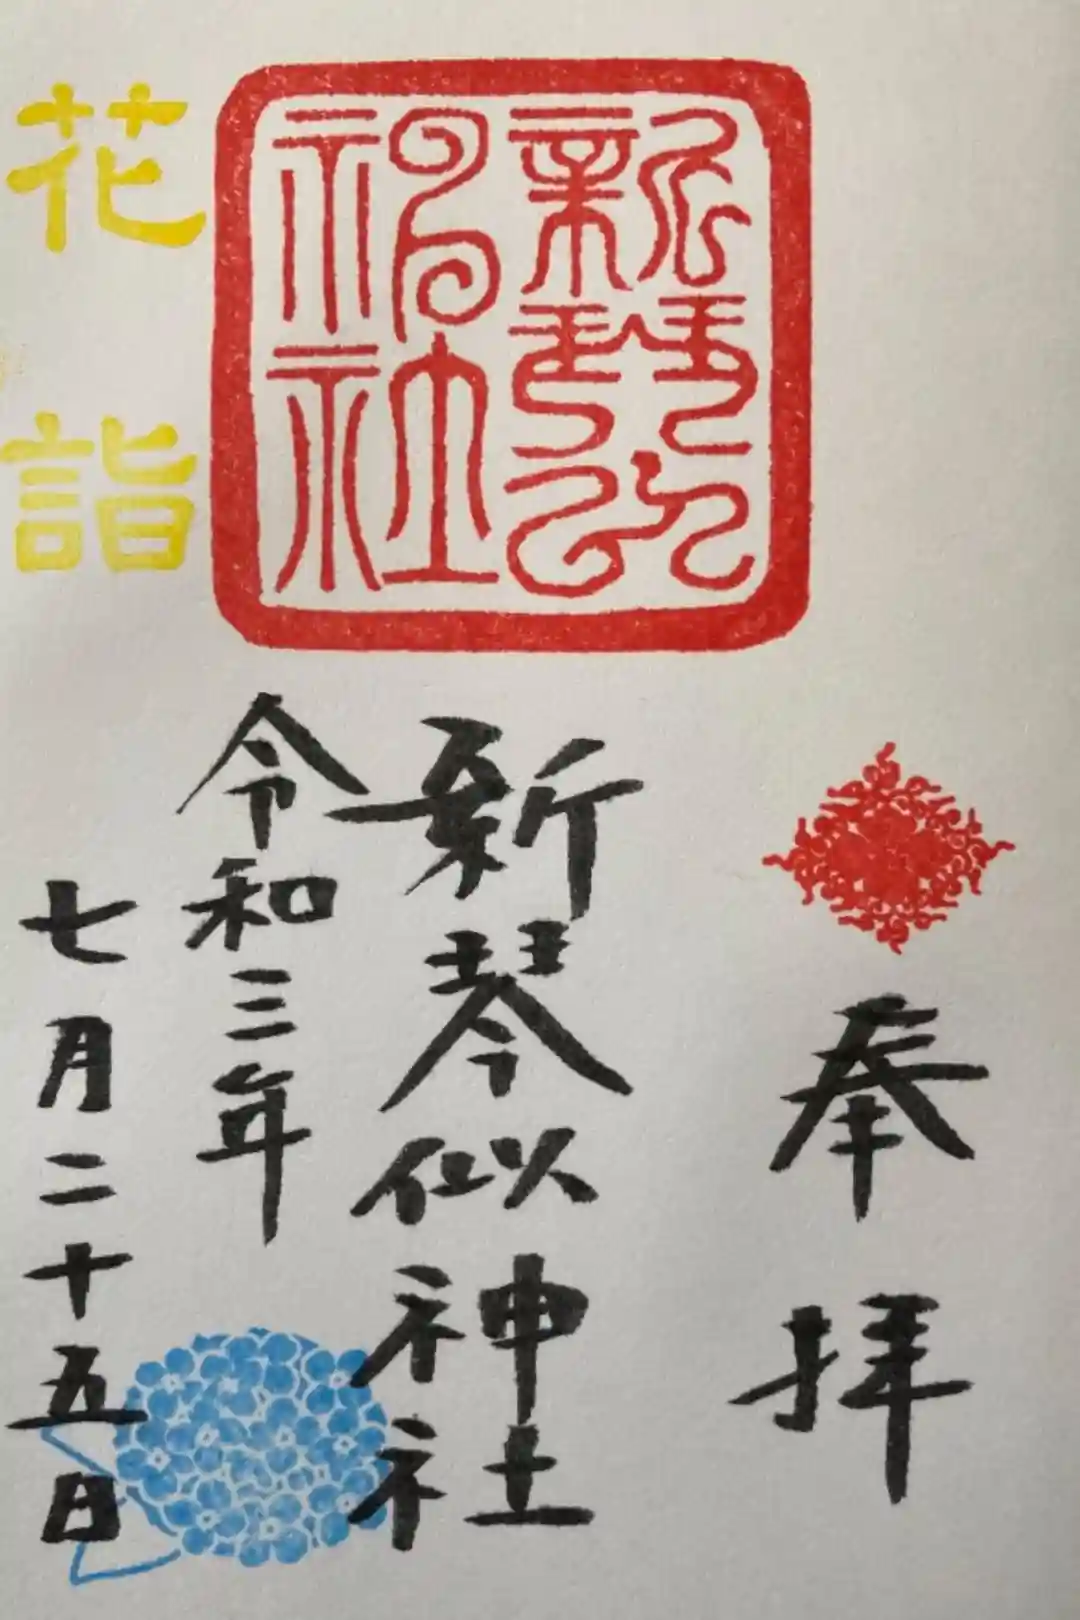 奉拝
新琴似神社
新琴似神社
令和三年
七月二十五日
花詣